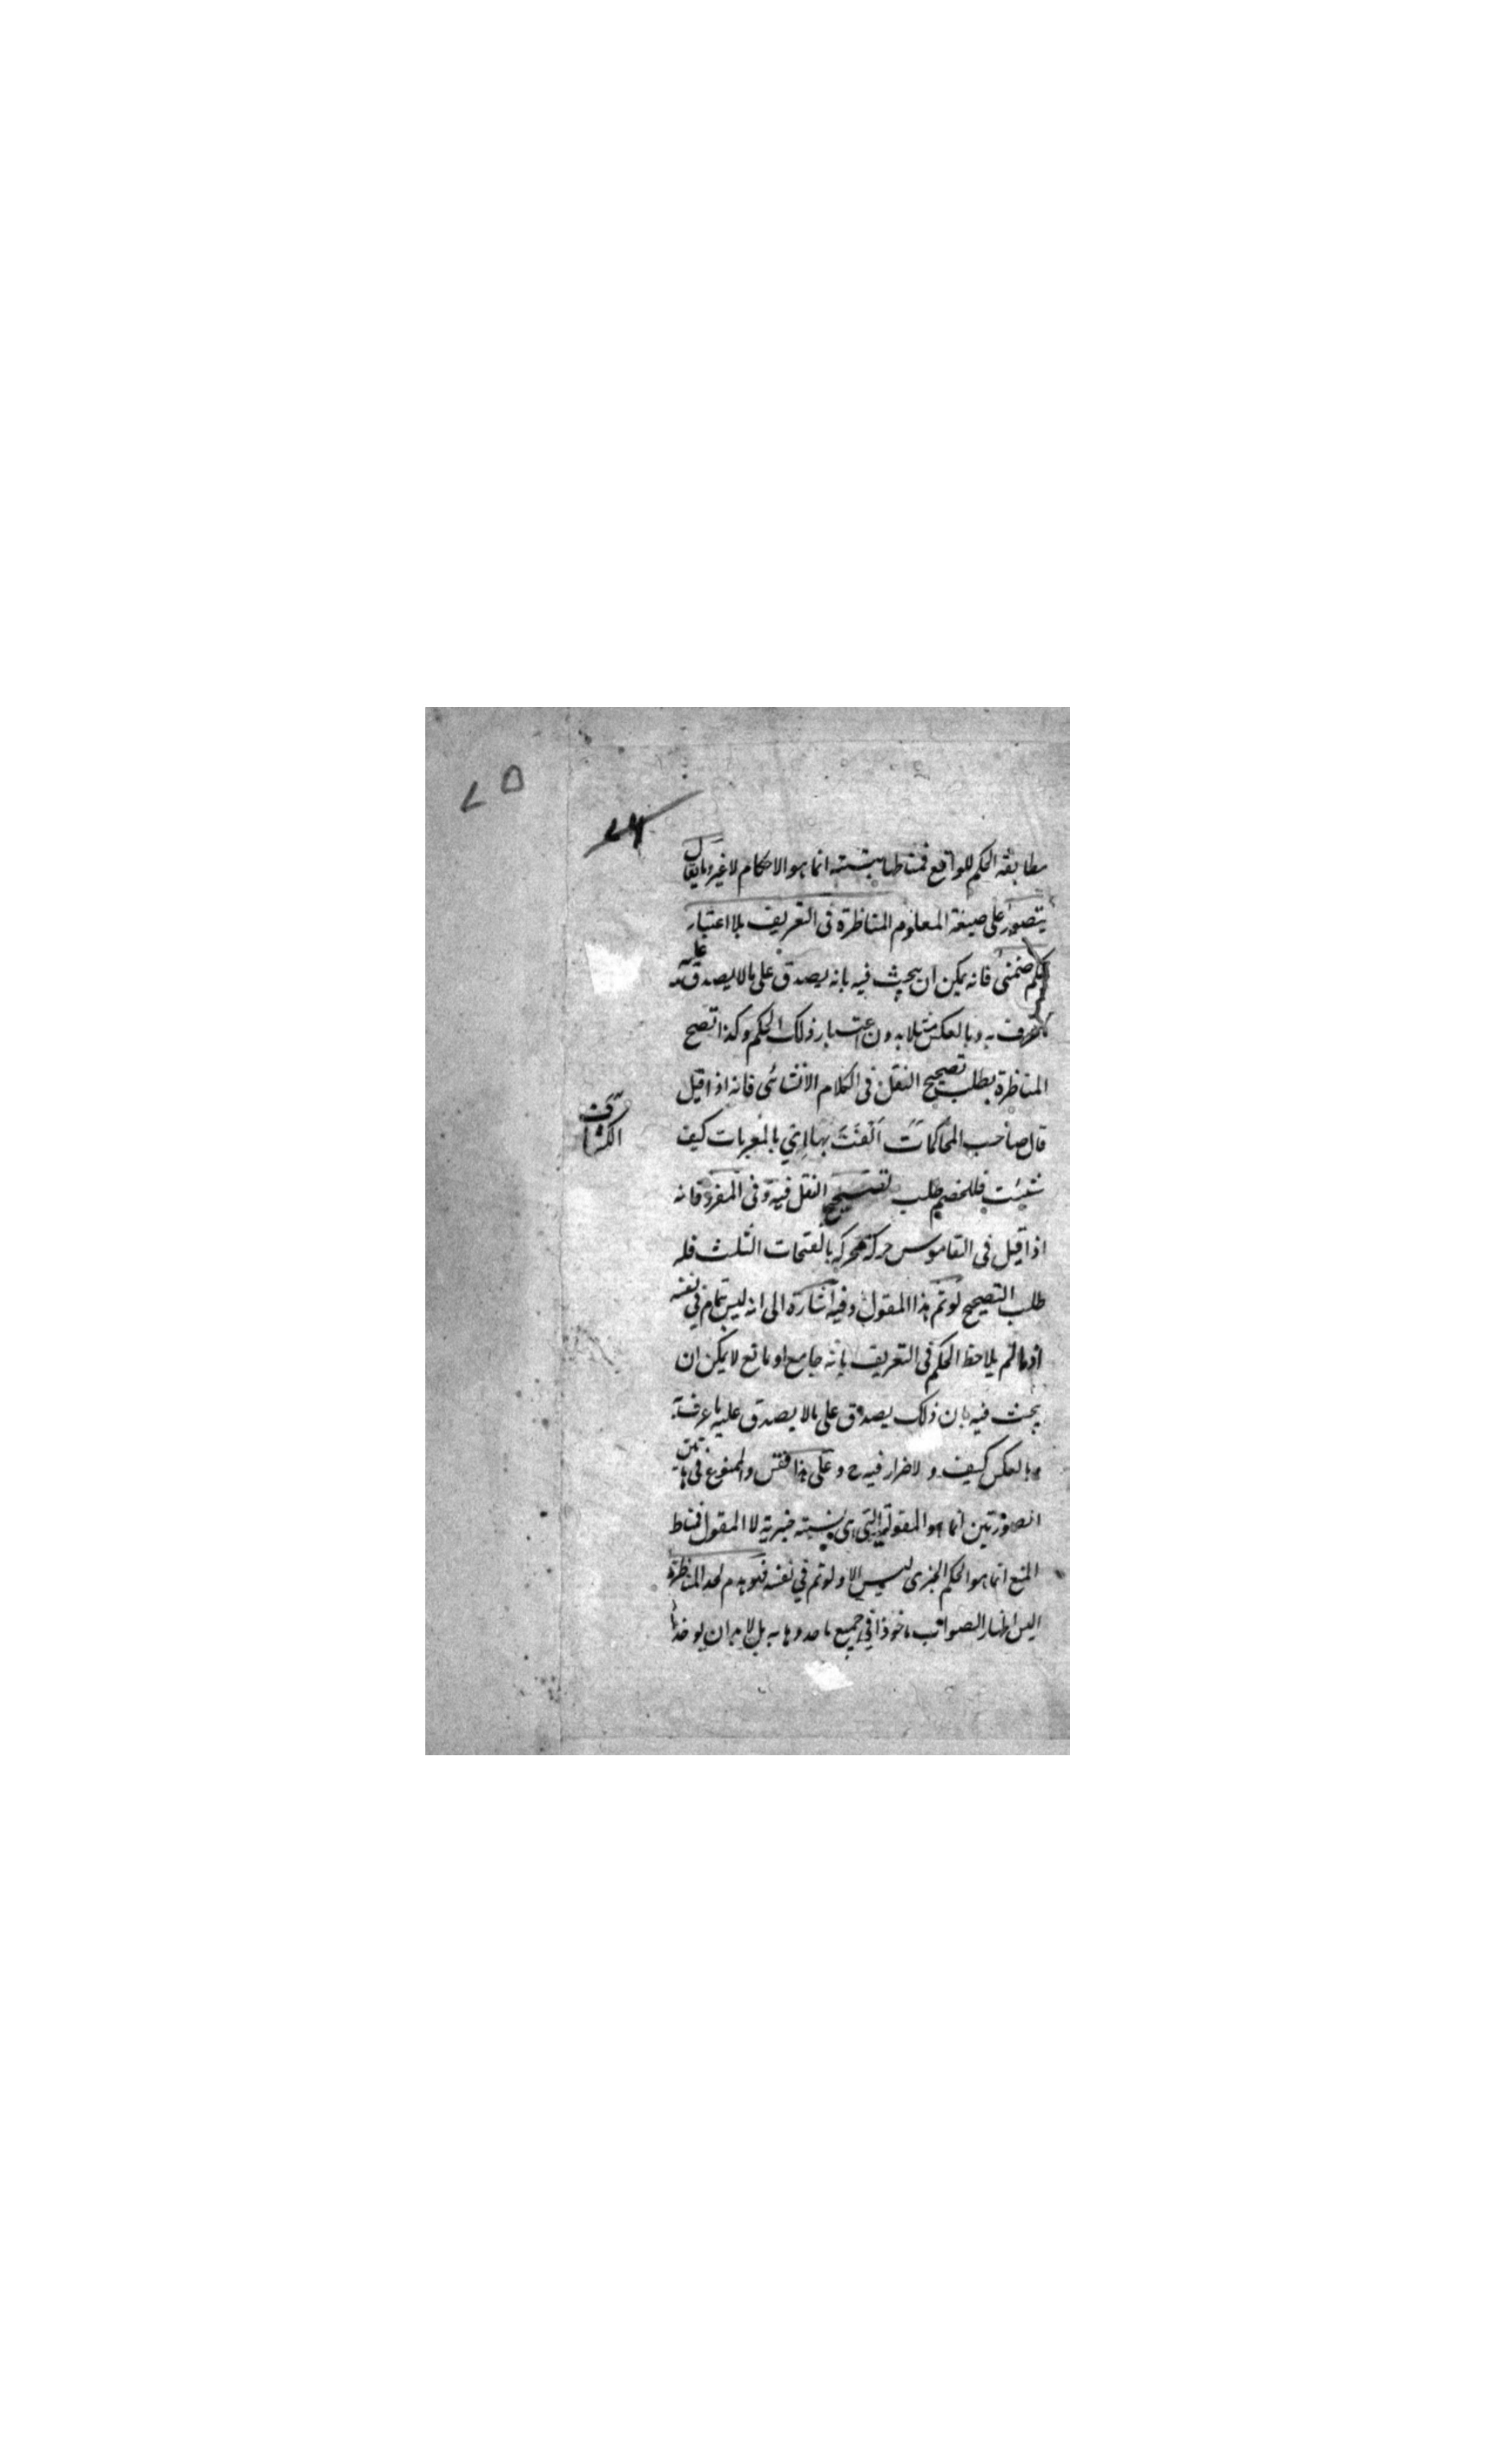 مطابقة الحكم للواقع فمناط انما هو الاحكام لا غير وما يقال
يتصور على صيغة المعلوم المناظرة فى التعريف بلا اعتبار
حكم ضمنى فانه يمكن ان يبحث فيه بانه يصدق على ما لا يصدق عليه
وبالعكس مثلا بدون اعتبار ذلك الحكم وكذا تصح
المناظرة بطلب تصحيح النقل فى الكلام الانشائى فانه اذا قيل
قال صاحب المحاكمات بها اى بالمعربات كيف
شئت فللخصم طلب تصحيح النقل فيه وفى المفرد فانه
اذا قيل فى القاموس حركة محركة بالفتحات الثلث فله
طلب التصحيح لو تم هذا المقول وفيه اشارة الى انه ليس بتمام فى نفسه
اذ ما لم يلاحظ الحكم فى التعريف بانه جامع او مانع لا يمكن ان
يبحث فيه بان ذلك يصدق على ما لا يصدق عليه ما عرف به
وبالعكس كيف ولا ضرار فيه ح وعلى هذا فقس والممنوع فى هاتين
الصورتين انما هو المقولية التى هى نسبة خبرية لا المقول فمناط
المنع انما هو الحكم الخبرى ليس الا ولو تم فى نفسه فهو يهدم لحد المناظرة
اليس اظهار الصواب ماخوذا فى جميع ما حدوها به بل لا بد ان يوخذ
الكشاف
٧٥